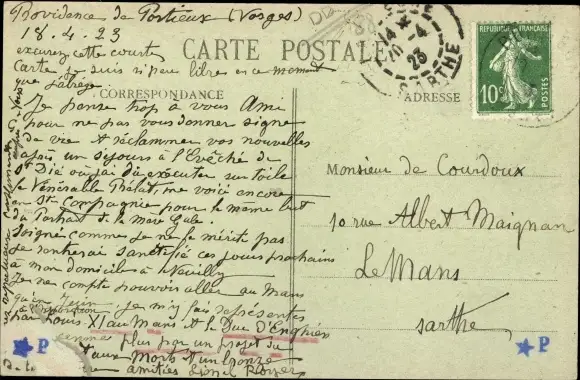 Providence de Portieux (Vosges)
18.4.23
excusez cette courte
Carte je suis si peu libre en ce moment
que j'abrège
CARTE POSTALE
CORRESPONDANCE
ADRESSE
Je pense trop à vous Ami
pour ne pas vous donner signe
de vie et réclammer vos nouvelles
après un séjours à l'Evêché de
St Dié ou j'ai du exécuter sur toile
le Vénérable Prélat, me voici encore
en Ste Compagnie pour le même but
du Portrait de la mère Gale.
Soigné comme je ne le mérite pas
Je rentrerai sanctifié ces jours prochains
à mon domicile à Neuilly
Je ne compte pouvoir aller au Mans
qu'en Juin
je m'y fais représenter
par Louis XI au Mans et le Duc D'Enghien
plus par un projet du
aux Morts et un bronze
amitiés Lionel Royer
Monsieur de Courdoux
10 rue Albert Maignan
Le Mans
Sarthe
14
20-4
23
SARTHE
RÉPUBLIQUE FRANÇAISE
10c
POSTES
P
P